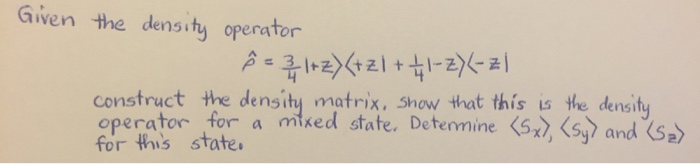 Given the density operator
ρ̂ = 3/4 |+z⟩⟨+z| + 1/4 |-z⟩⟨-z|
construct the density matrix. Show that this is the density
operator for a mixed state. Determine ⟨Sx⟩, ⟨Sy⟩ and ⟨Sz⟩
for this state.